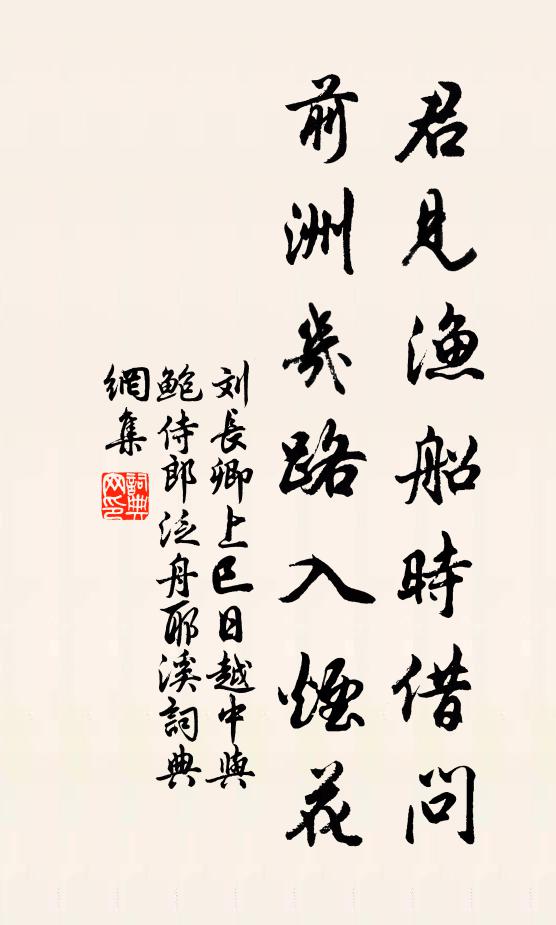 君見漁船時借問
前洲幾路入煙花
刘長卿上巳日越中與
鮑侍郎泛舟耶溪詞典
網集
詞典
网印